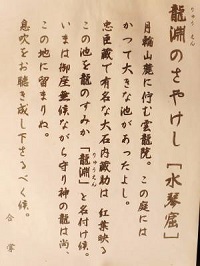 龍淵のさやけし［水琴窟］
りゅう えん
月輪山麓に佇む雲龍院。この庭には
かつて大きな池があったよし。
忠臣蔵で有名な大石内蔵助は 紅葉映る
この池を龍のすみか「龍淵」と名付け候。
りゅうえん
いまは御座無候ながら守り神の龍は尚、
この地に留まりぬ。
息吹をお聴き成し下さるべく候。
合掌